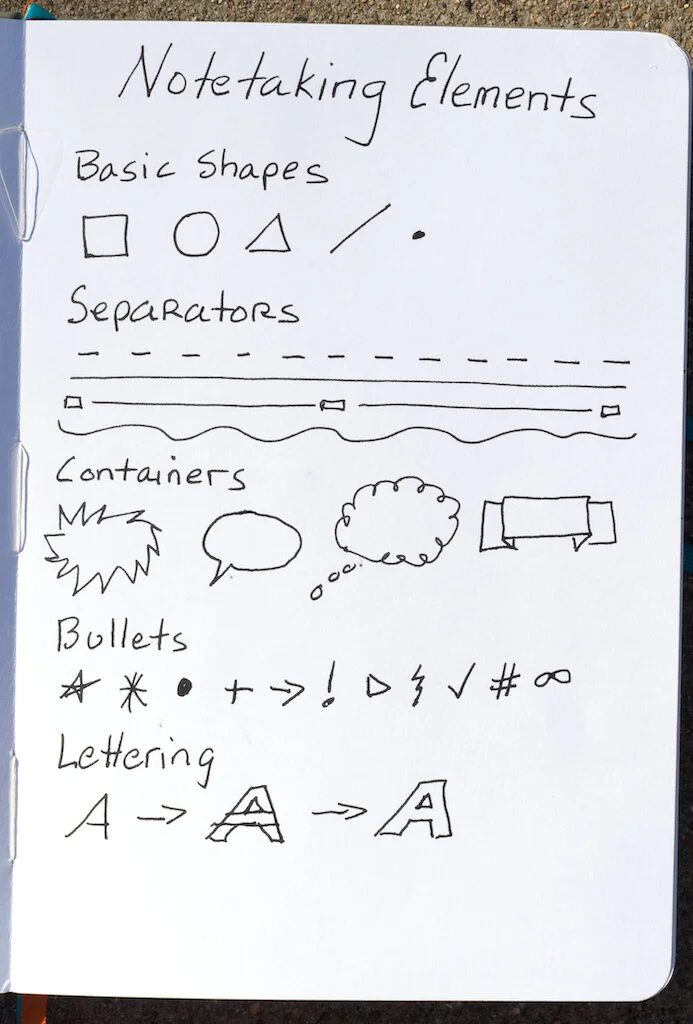 Notetaking Elements
Basic Shapes
Separators
Containers
Bullets
* • + → ! ▷ √ # ∞
Lettering
A → A → A